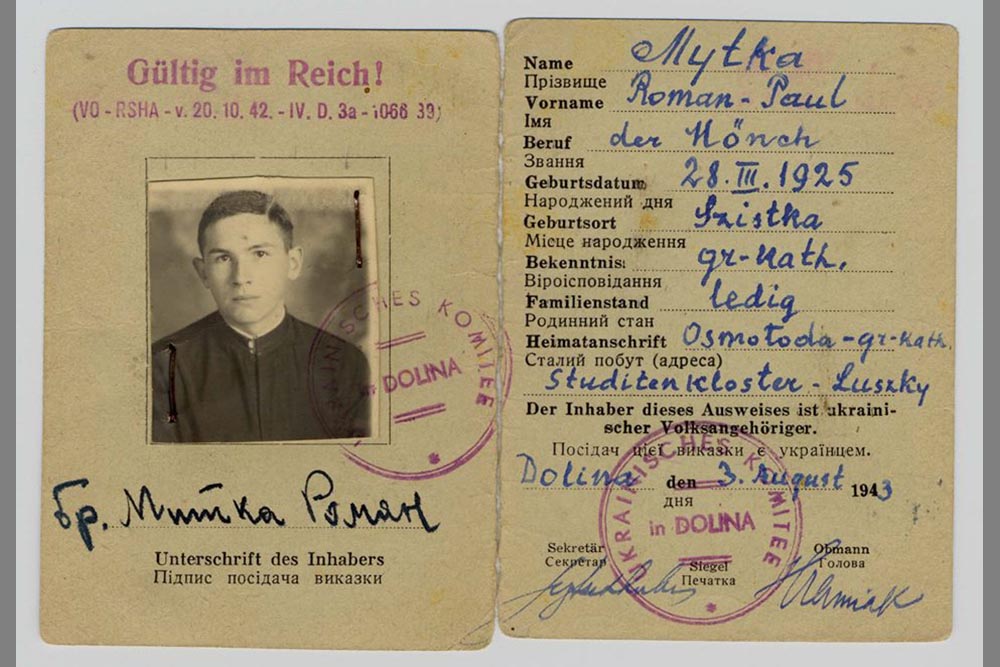 Gültig im Reich!
(VO - RSHA - v. 20. 10. 42. - IV. D. 3a - 1066 39)
UKRAINISCHES KOMITEE
in DOLINA
Бр. Митка Роман
Unterschrift des Inhabers
Підпис посідача виказки
Name Mytka
Прізвище
Vorname Roman-Paul
Імя
Beruf der Mönch
Звання
Geburtsdatum 28. III. 1925
Народжений дня
Geburtsort Szistka
Місце народження
Bekenntnis: gr-kath.
Віроісповідання
Familienstand ledig
Родинний стан
Heimatanschrift Osmołoda-gr-kath.
Сталий побут (адреса)
Studitenkloster - Luszky
Der Inhaber dieses Ausweises ist ukraini-
scher Volksangehöriger.
Посідач цієї виказки є українцем.
Dolina den 3. August 1943
дня
UKRAINISCHES KOMITEE
in DOLINA
Sekretär Siegel Obmann
Секретар Печатка Голова